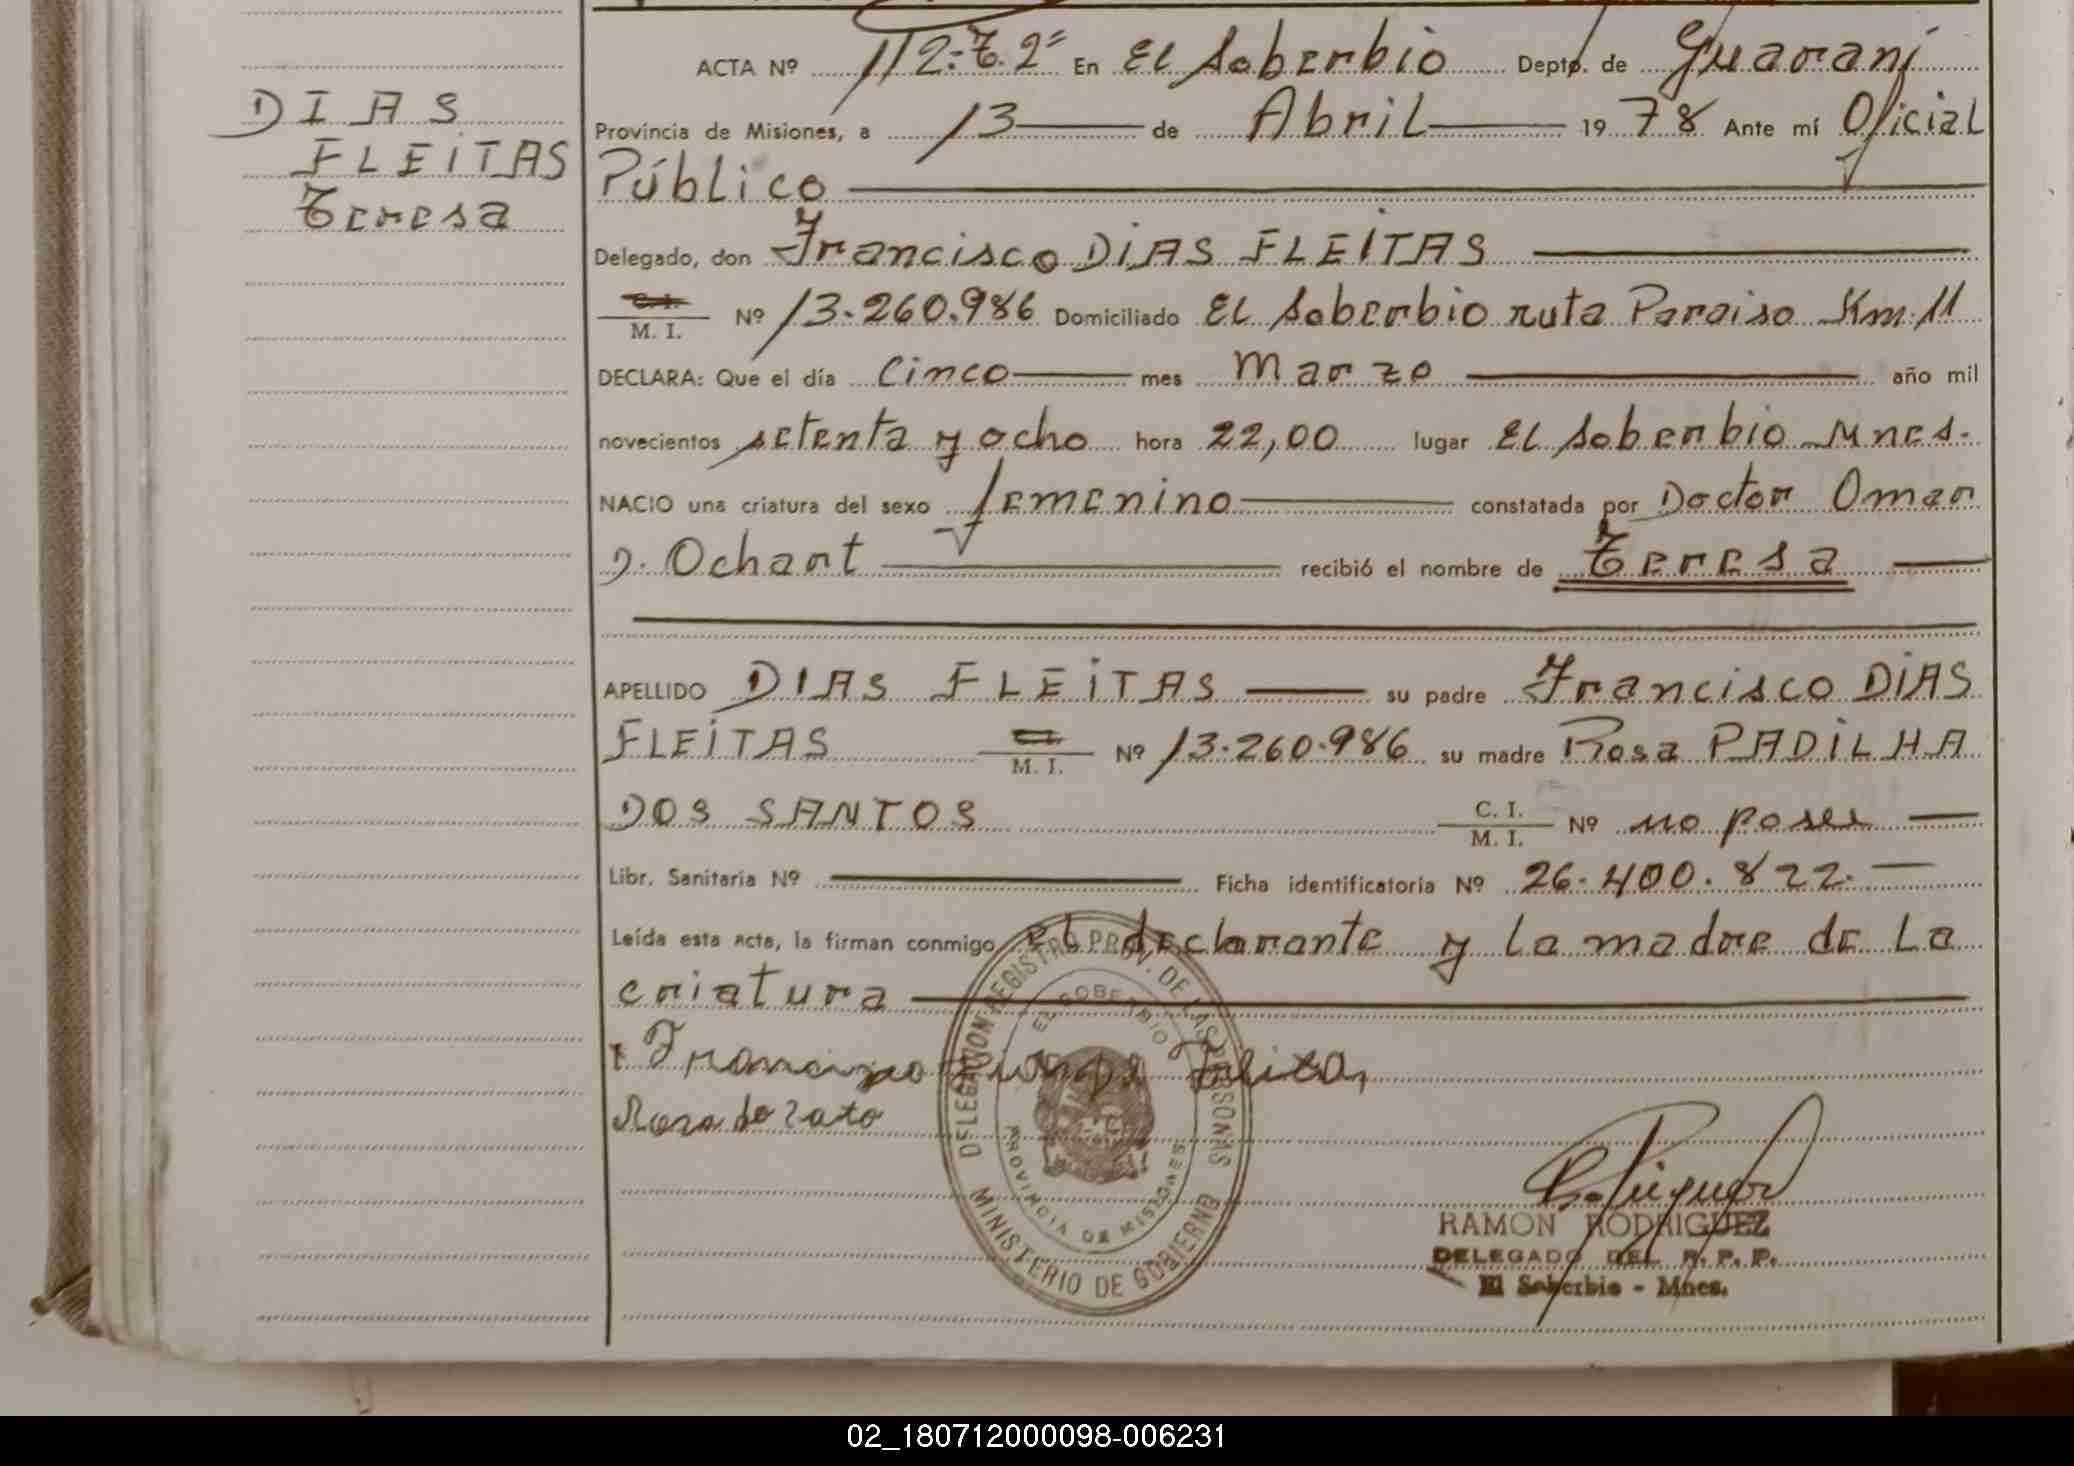 DIAS
FLEITAS
Teresa
ACTA Nº 112-T.2º En El Soberbio Depto. de Guaraní
Provincia de Misiones, a 13 de Abril 1978 Ante mí Oficial
Público
Delegado, don Francisco DIAS FLEITAS
C. I.
M. I. Nº 13.260.986 Domiciliado El Soberbio ruta Paraiso Km. 11
DECLARA: Que el día Cinco mes Marzo año mil
novecientos setenta y ocho hora 22,00 lugar El Soberbio Mnes.
NACIO una criatura del sexo femenino constatada por Doctor Omar
D. Ochart recibió el nombre de Teresa
APELLIDO DIAS FLEITAS su padre Francisco DIAS
FLEITAS M. I. Nº 13.260.986 su madre Rosa PADILHA
DOS SANTOS C. I. M. I. Nº no posee
Libr. Sanitaria Nº Ficha identificatoria Nº 26.400.822.
Leída esta acta, la firman conmigo el declarante y la madre de la
criatura
DELEGACION REGISTRO PROV. DE LAS PERSONAS
EL SOBERBIO
PROVINCIA DE MISIONES
MINISTERIO DE GOBIERNO
RAMON RODRIGUEZ
DELEGADO DEL R. P. P.
El Soberbio - Mnes.
02_180712000098-006231